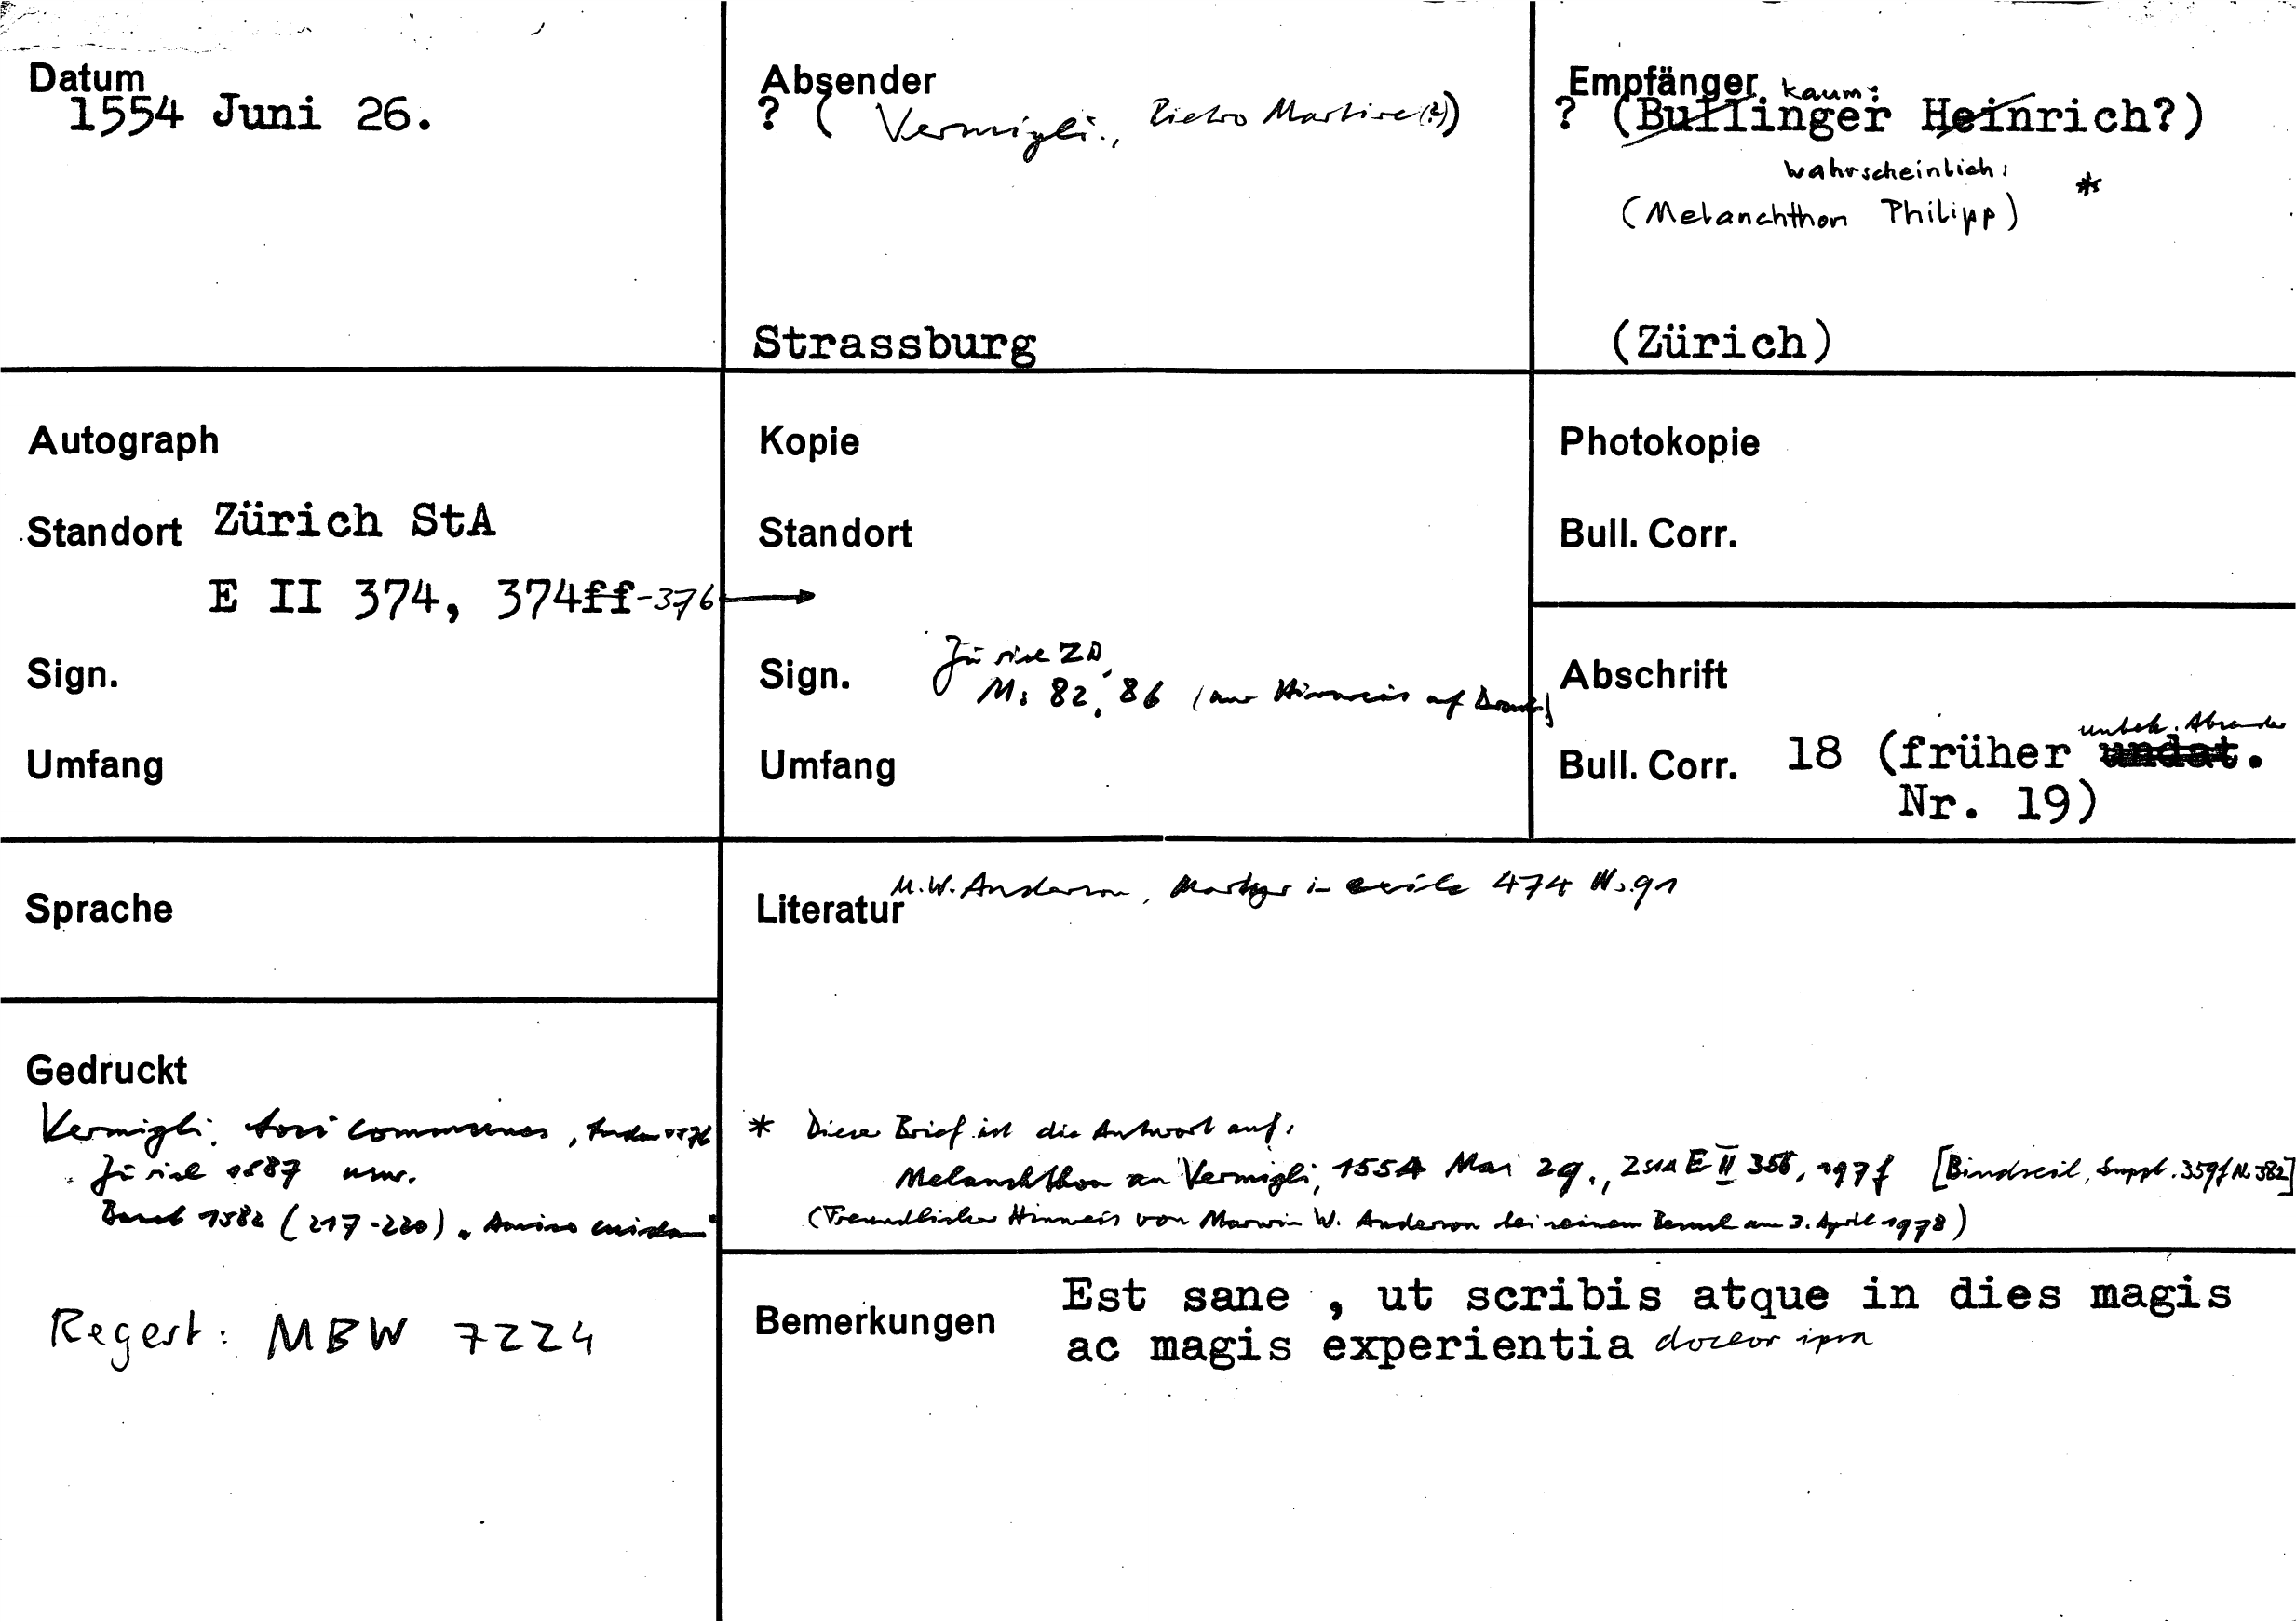 Datum
1554 Juni 26.
Absender
? ( Vermigli., Pietro Martire (?))
Strassburg
Empfänger kaum:
? (Bullinger Heinrich?)
wahrscheinlich:
(Melanchthon Philipp) *
(Zürich)
Autograph
Standort Zürich StA
E II 374, 374ff-376 →
Sign.
Umfang
Kopie
Standort
Sign. Zürich ZB,
Ms 82, 86 (nur Hinweis auf Druck)
Umfang
Photokopie
Bull. Corr.
Abschrift
unbek. Absender
Bull. Corr. 18 (früher undat.
Nr. 19)
Sprache
Literatur M.W. Anderson, Martyr in exile 474 Nr. 91
Gedruckt
Vermigli, loci communes, London 1576
Zürich 1587 usw.
Basel 1582 (217-220) "Amico cuidam"
Regest: MBW 7224
* Dieser Brief ist die Antwort auf:
Melanchthon an Vermigli, 1554 Mai 29., ZStA E II 356, 197f [Bindseil, Suppl. 359f Nr. 382]
(Freundlicher Hinweis von Marvin W. Anderson bei seinem Besuch am 3. April 1978)
Bemerkungen
Est sane , ut scribis atque in dies magis
ac magis experientia doceor ipsa